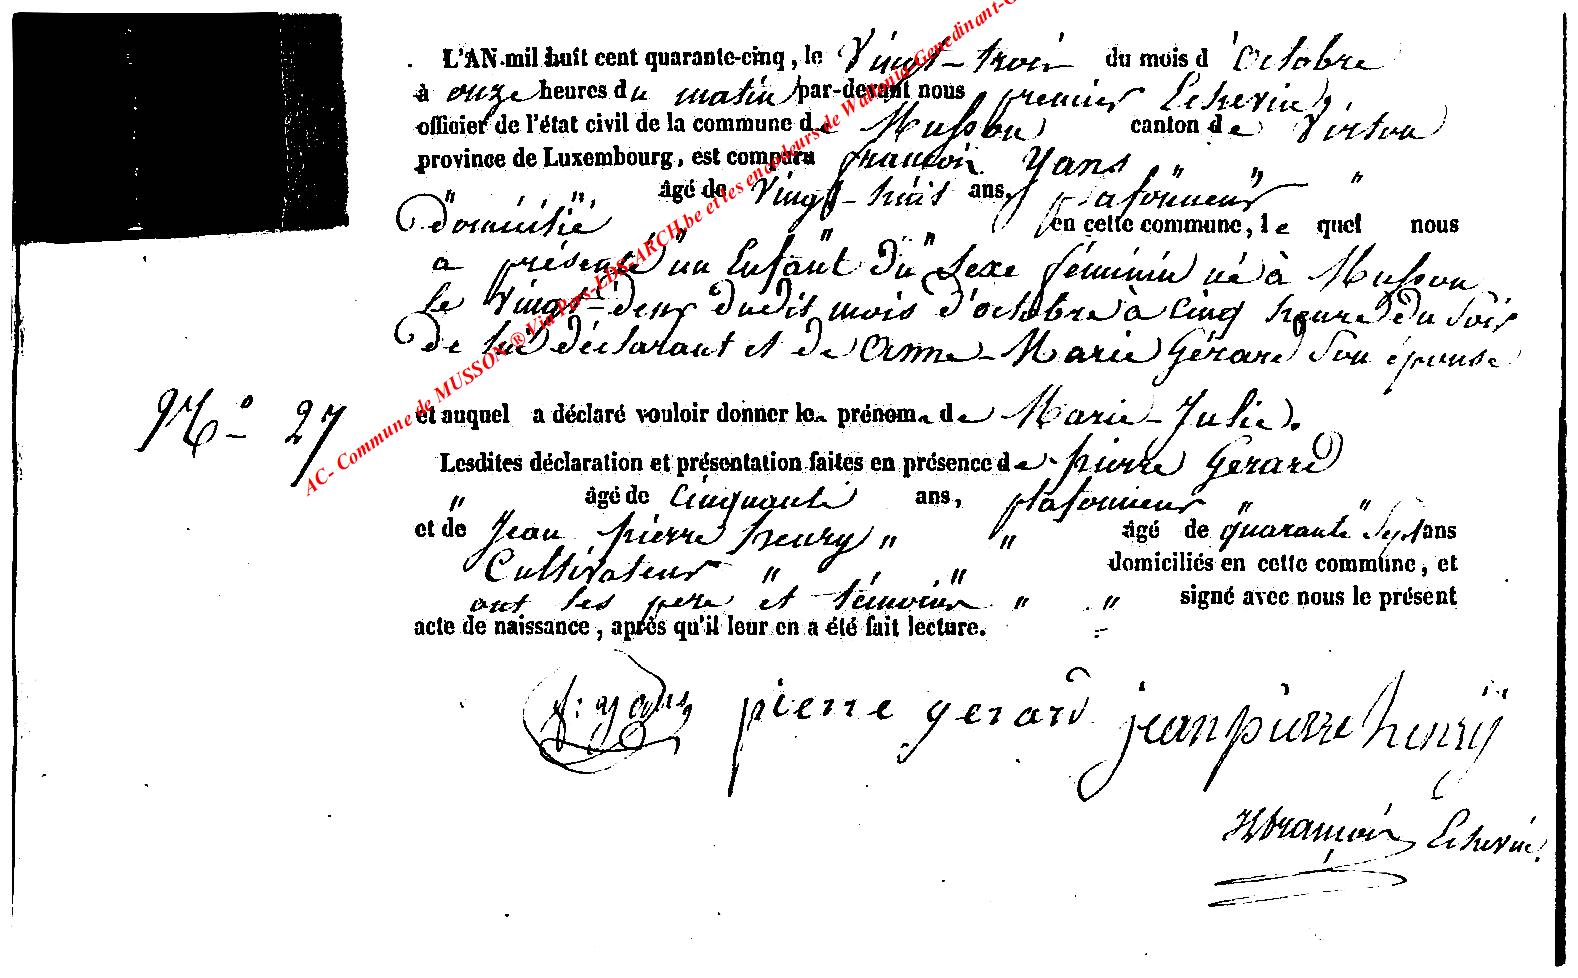 L'AN mil huit cent quarante-cinq, le Vingt-trois du mois d'octobre
à onze heures du matin par-devant nous premier Echevin,
officier de l'état civil de la commune de Musson canton de Virton
province de Luxembourg, est comparu françois Yans
" " âgé de vingt-huit ans, plafonneur " " "
domicilié en cette commune, lequel nous
a présenté un Enfant du sexe féminin né à Musson
le vingt-deux dudit mois d'octobre à cinq heure du soir
de lui déclarant et de anne-Marie Gérard son épouse
N.° 27
et auquel a déclaré vouloir donner le prénom de Marie-Julie.
Lesdites déclaration et présentation faites en présence de pierre Gérard
" âgé de cinquante ans, plafonneur " "
et de Jean pierre henry " " âgé de quarante sept ans
Cultivateur " " domiciliés en cette commune, et
ont les pere et témoins " " signé avec nous le présent
acte de naissance, après qu'il leur en a été fait lecture.
f: yans pierre gerard jean pierre henry
françois Echevin.
AC- Commune de MUSSON ® Via Pers-LDS-ARCH.be et les encodeurs de Wallonia-Genedinant-G